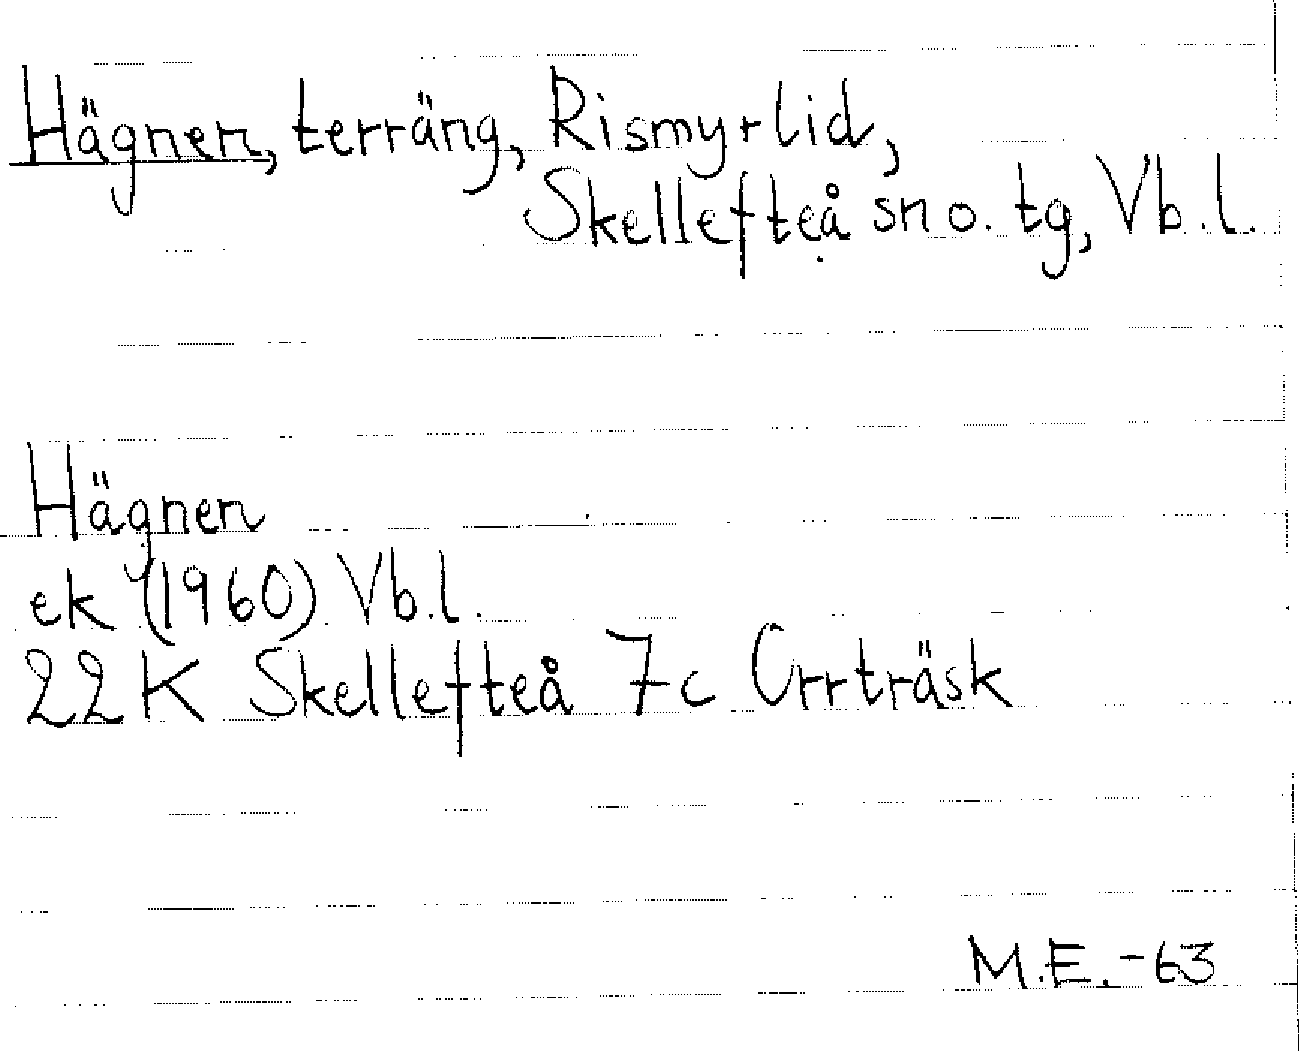 Hägnen, terräng, Rismyrlid,
Skellefteå sn o. tg, Vb.l.
Hägnen
ek (1960) Vb.l.
22K Skellefteå 7c Orrträsk
M.E.-63